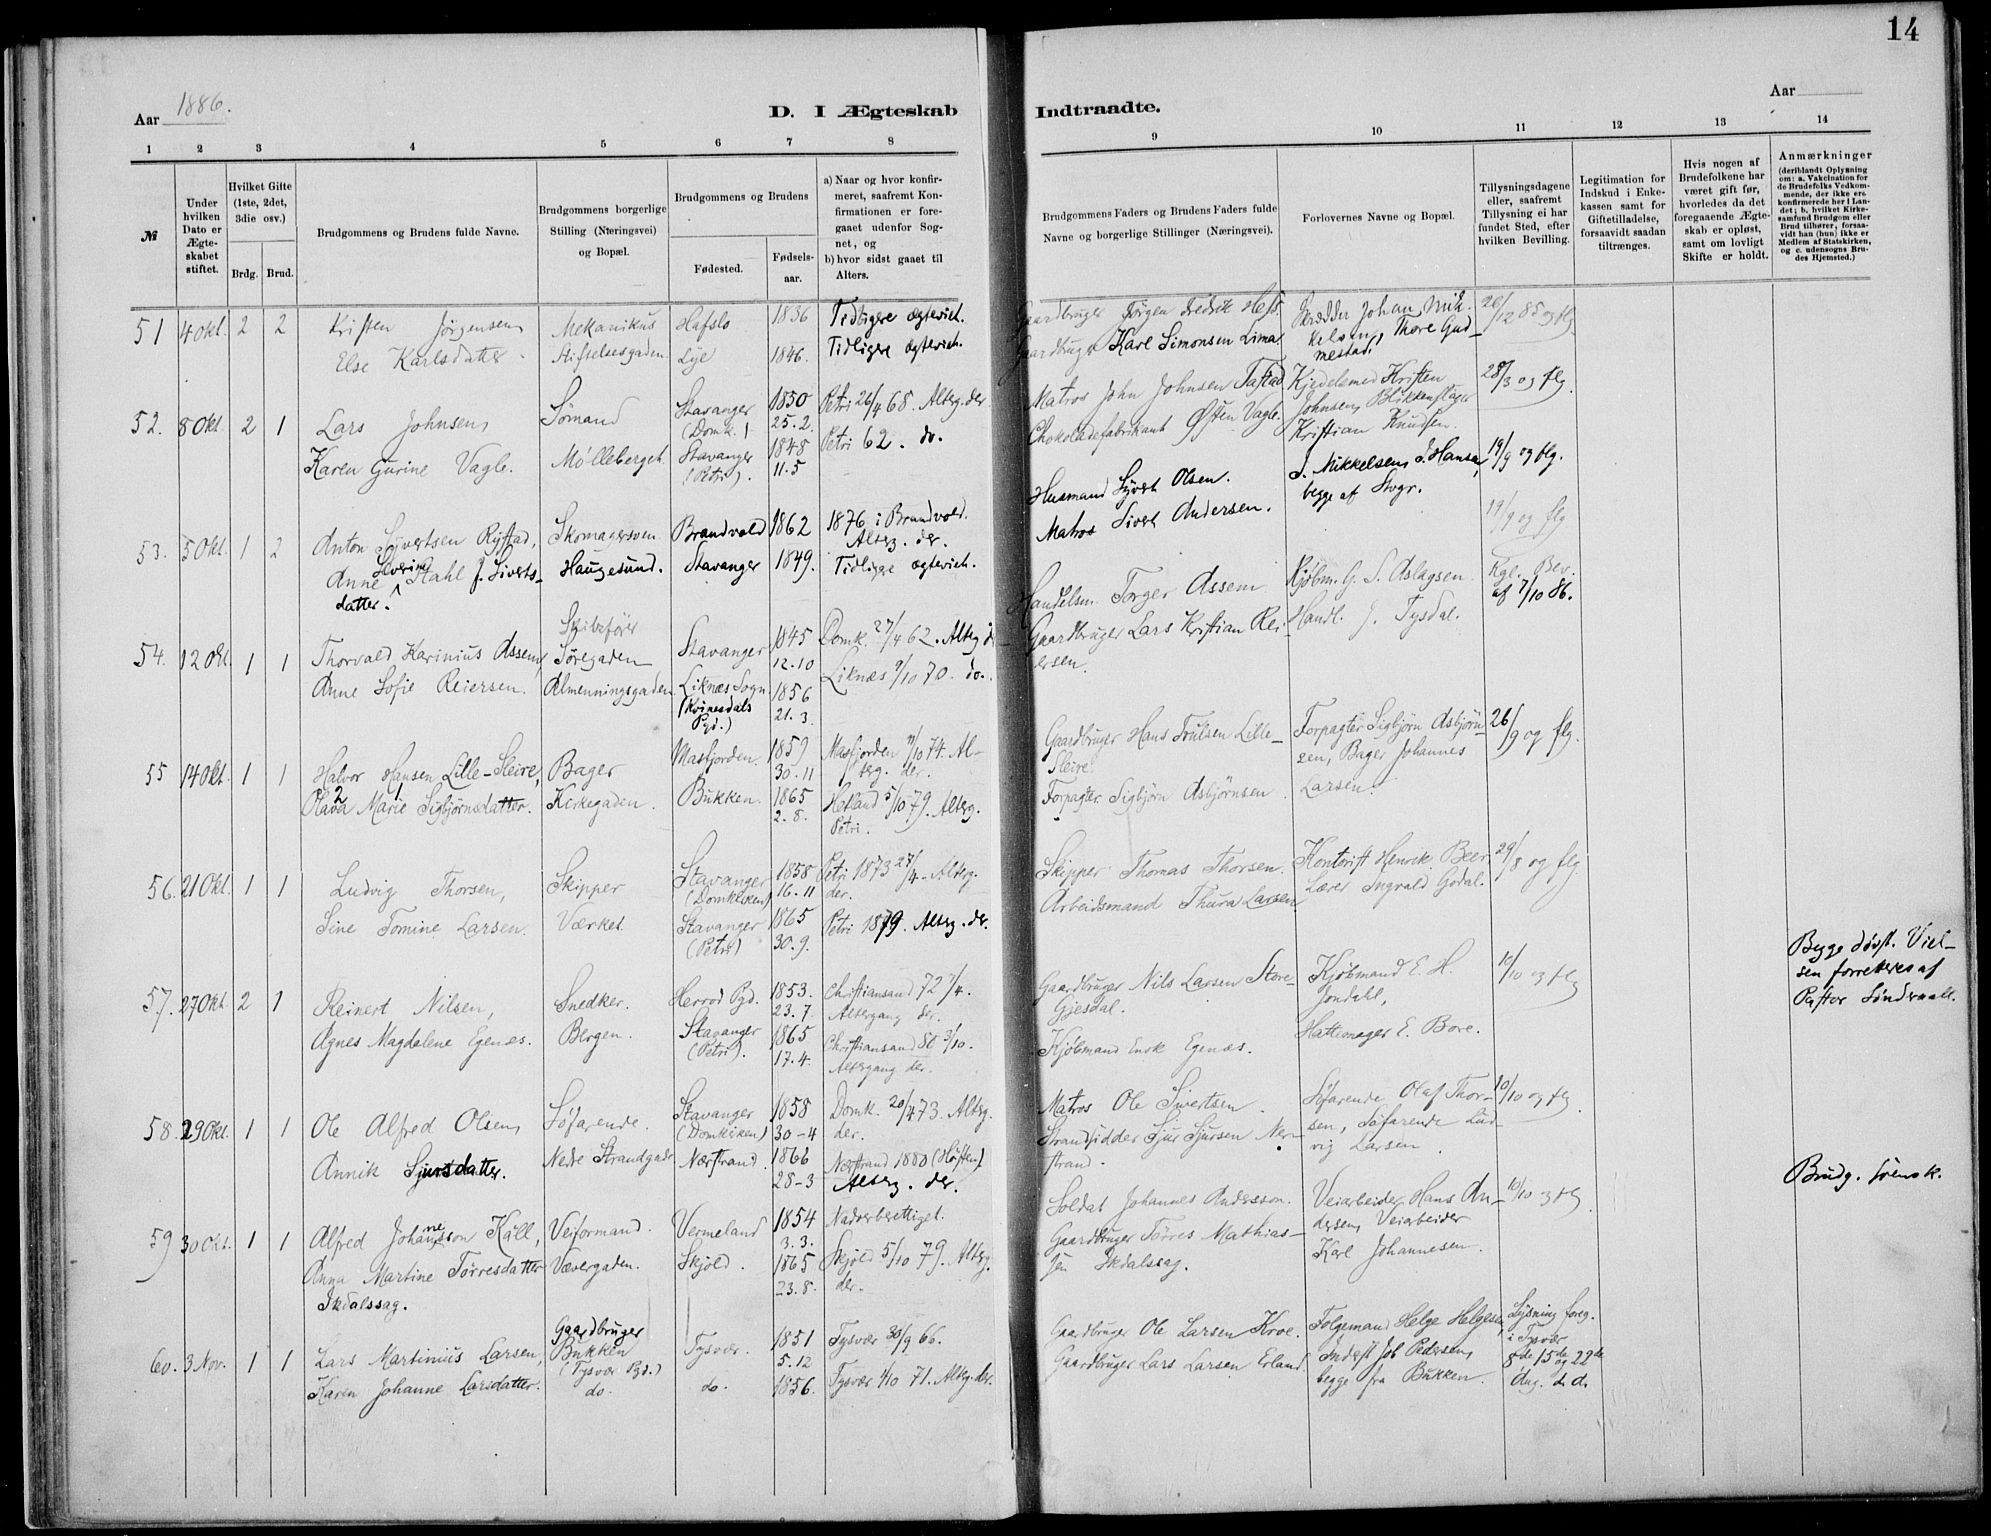 14
Aar 1886.
D. I Ægteskab Indtraadte.
Aar
1 2 3 4 5 6 7 8 9 10 11 12 13 14
№
Under hvilken Dato er Ægteskabet stiftet.
Hvilket Gifte (1ste, 2det, 3die osv.)
Brdg. Brud.
Brudgommens og Brudens fulde Navne.
Brudgommens borgerlige Stilling (Næringsvei) og Bopæl.
Brudgommens og Brudens
Fødested.
Fødselsaar.
a) Naar og hvor konfirmeret, saafremt Konfirmationen er foregaaet udenfor Sognet, og
b) hvor sidst gaaet til Alters.
Brudgommens Faders og Brudens Faders fulde Navne og borgerlige Stillinger (Næringsvei).
Forlovernes Navne og Bopæl.
Tillysningsdagene eller, saafremt Tillysning ei har fundet Sted, efter hvilken Bevilling.
Legitimation for Indskud i Enkekassen samt for Giftetilladelse, forsaavidt saadan tiltrænges.
Hvis nogen af Brudefolkene har været gift før, hvorledes da det foregaaende Ægteskab er opløst, samt om lovligt Skifte er holdt.
Anmærkninger
(deriblandt Oplysning om: a. Vakcination for de Brudefolks Vedkommende, der ikke ere konfirmerede her i Landet; b. hvilket Kirkesamfund Brudgom eller Brud tilhører, forsaavidt han (hun) ikke er Medlem af Statskirken, og c. udensogns Brudes Hjemsted.)
51 4 Okt. 2 2 Kristen Jørgensen, Mekanikus Hafslo 1836 Tidligere ægteviet. Gaardbruger Jørgen Skrædder Johan Mik- 26/12 85 og flg
Else Karlsdatter. Stiftelsesgaden Lye 1846. Tidligere ægteviet. Gaardbruger Karl Simonsen Lima kelsen, Thore Gud-
mestad.
52. 8 Okt. 2 1 Lars Johnsen, Sømand Stavanger (Domk.) 1850 25.2. Petri 26/4 68. Alterg. der Matros John Johnsen Tastad Kjedelsmed Kristen Johnsen, Blikkenslager 28/3 og flg.
Karen Gurine Vagle. Møllebergel. Stavanger (Petri). 1848 11.5 Petri 62. do. Chokoladefabrikant Østen Vagle. Kristian Knudsen.
53. 5 Okt. 1 2 Anton Syvertsen Rystad, Skomagersven Brandvold 1862 1876 i Brandvold. Alterg. der. Husmand Syvert Olsen. S. Mikkelsen, J. Hansen, 19/9 og flg.
Anne Severine Stahl f. Siverts- Haugesund. Stavanger 1849. Tidligere ægteviet. Matros Sivert Andersen. begge af Stvgr. 19/9 og flg
datter.
54. 12 Okt. 1 1 Thorvald Karinius Assem, Skibsfører Søregaden Stavanger 1845 12.10 Domk. 27/4 62. Alterg. der Handelsm. Torger Assem Kjøbm. G. S. Aslagsen. Kgl. Bev. af 7/10 86.
Anne Sofie Reiersen. Almenningsgaden Liknæs Sogn (Kvinesdals Pgd.) 1856 21.3. Liknæs 9/10 70. do. Gaardbruger Lars Kristian Rei- ersen. Handl. J. Tysdal.
55 14 Okt. 1 1 Halvor Hansen Lille-Sleire, Bager Masfjorden. 1859 30.11 Masfjorden 11/10 74. Al- terg. der. Gaardbruger Hans Trulsen Lille- Sleire. Forpagter Sigbjørn Asbjørn- 26/9 og flg.
Olava Marie Sigbjørnsdatter. Kirkegaden. Bukken. 1865 2.8. Hetland 5/10 79. Alterg. Petri. Forpagter Sigbjørn Asbjørnsen sen, Bager Johannes Larsen.
56. 21 Okt. 1 1 Ludvig Thorsen, Skipper Stavanger (Domkirken) 1858 16.11 Petri 1873 27/4. Alterg. der. Skipper Thomas Thorsen. Kontorist Henrik Beer, 29/8 og flg
Sine Tomine Larsen. Værket. Stavanger (Petri) 1865 30.9. Petri 1879. Alterg. der. Arbeidsmand Thura Larsen. Lærer Ingvald Godal.
57. 27 Okt. 2 1 Reinert Nilsen, Snedker. Herrod Pgd. 1853. 23.7. Christiansand 72 7/4. Altergang der. Gaardbruger Nils Larsen Store- Gjesdal. Kjøbmand E. H. Jondahl, 10/10 og flg Begge døvst. Viel- sen forrettes af Pastor Søndraal.
Agnes Magdalene Egenæs. Bergen. Stavanger (Petri). 1865 17.4. Christiansand 80 3/10. Altergang der. Kjøbmand Enok Egenæs. Hattemager E. Bore.
58. 29 Okt. 1 1 Ole Alfred Olsen, Søfarende. Stavanger (Domkirken) 1858 30-4 Domk. 20/4 73. Alterg. der. Matros Ole Sivertsen. Søfarende Olaf Thor- 10/10 og flg
Annik Sjursdatter. Nedre Strandgade Nærstrand. 1866 28-3 Nærstrand 1880 (Høsten) Alterg. der. Strandsidder Sjur Sjursen Ner- strand. sen, Søfarende Lud- vig Larsen
59 30 Okt. 1 1 Alfred Johannesson Käll, Veiformand. Vermeland 1854 3.3. Nadverberettiget. Soldat Johannes Andersson. Veiarbeider Hans An- 10/10 og flg Brudg. svensk.
Anna Martine Tørresdatter Ikdalssag. Vævergaden. Skjold. 1865 23.8. Skjold 5/10 79. Alterg. der. Gaardbruger Tørres Mathias- sen Ikdalssag. dersen, Veiarbeider Karl Johannesen.
60. 3 Nov. 1 1 Lars Martinius Larsen, Gaardbruger Bukken (Tysvær Pgd.) Tysvær. 1851 5.12 Tysvær 30/9 66. Gaardbruger Ole Larsen Kroe. Folgemand Helge Helgesen, Lysning foreg. i Tysvær
Karen Johanne Larsdatter. do. do. 1856. Tysvær 1/10 71. Alterg. der. Gaardbruger Lars Larsen Erland. Inderst Job Pedersen, begge fra Bukken. 8de 15de og 22de Aug. d. A.